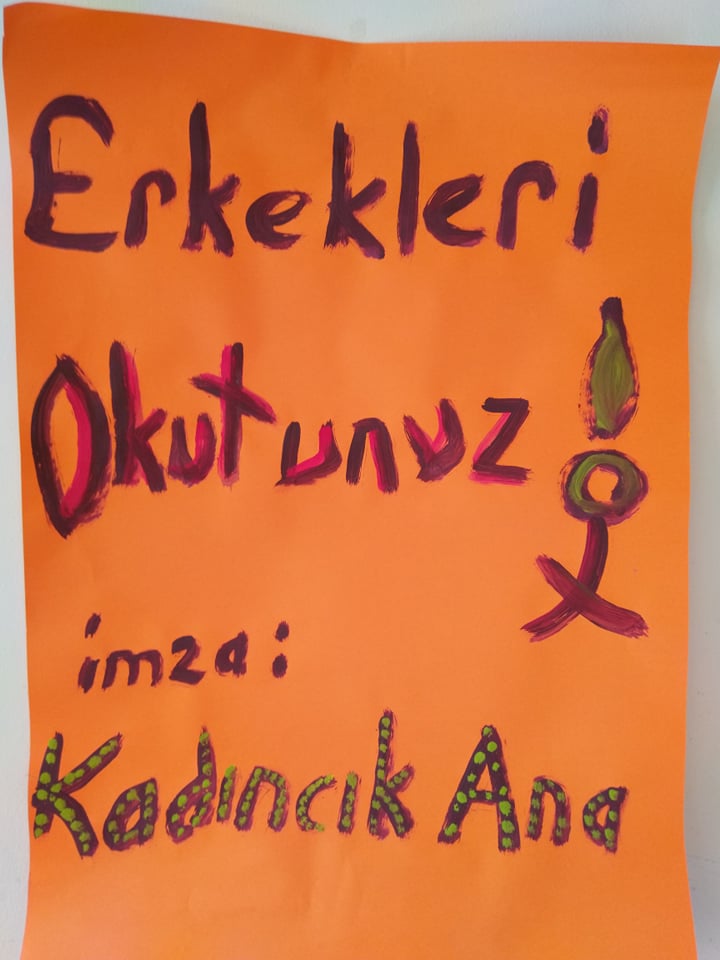 Erkekleri
Okutunuz!
imza:
Kadıncık Ana